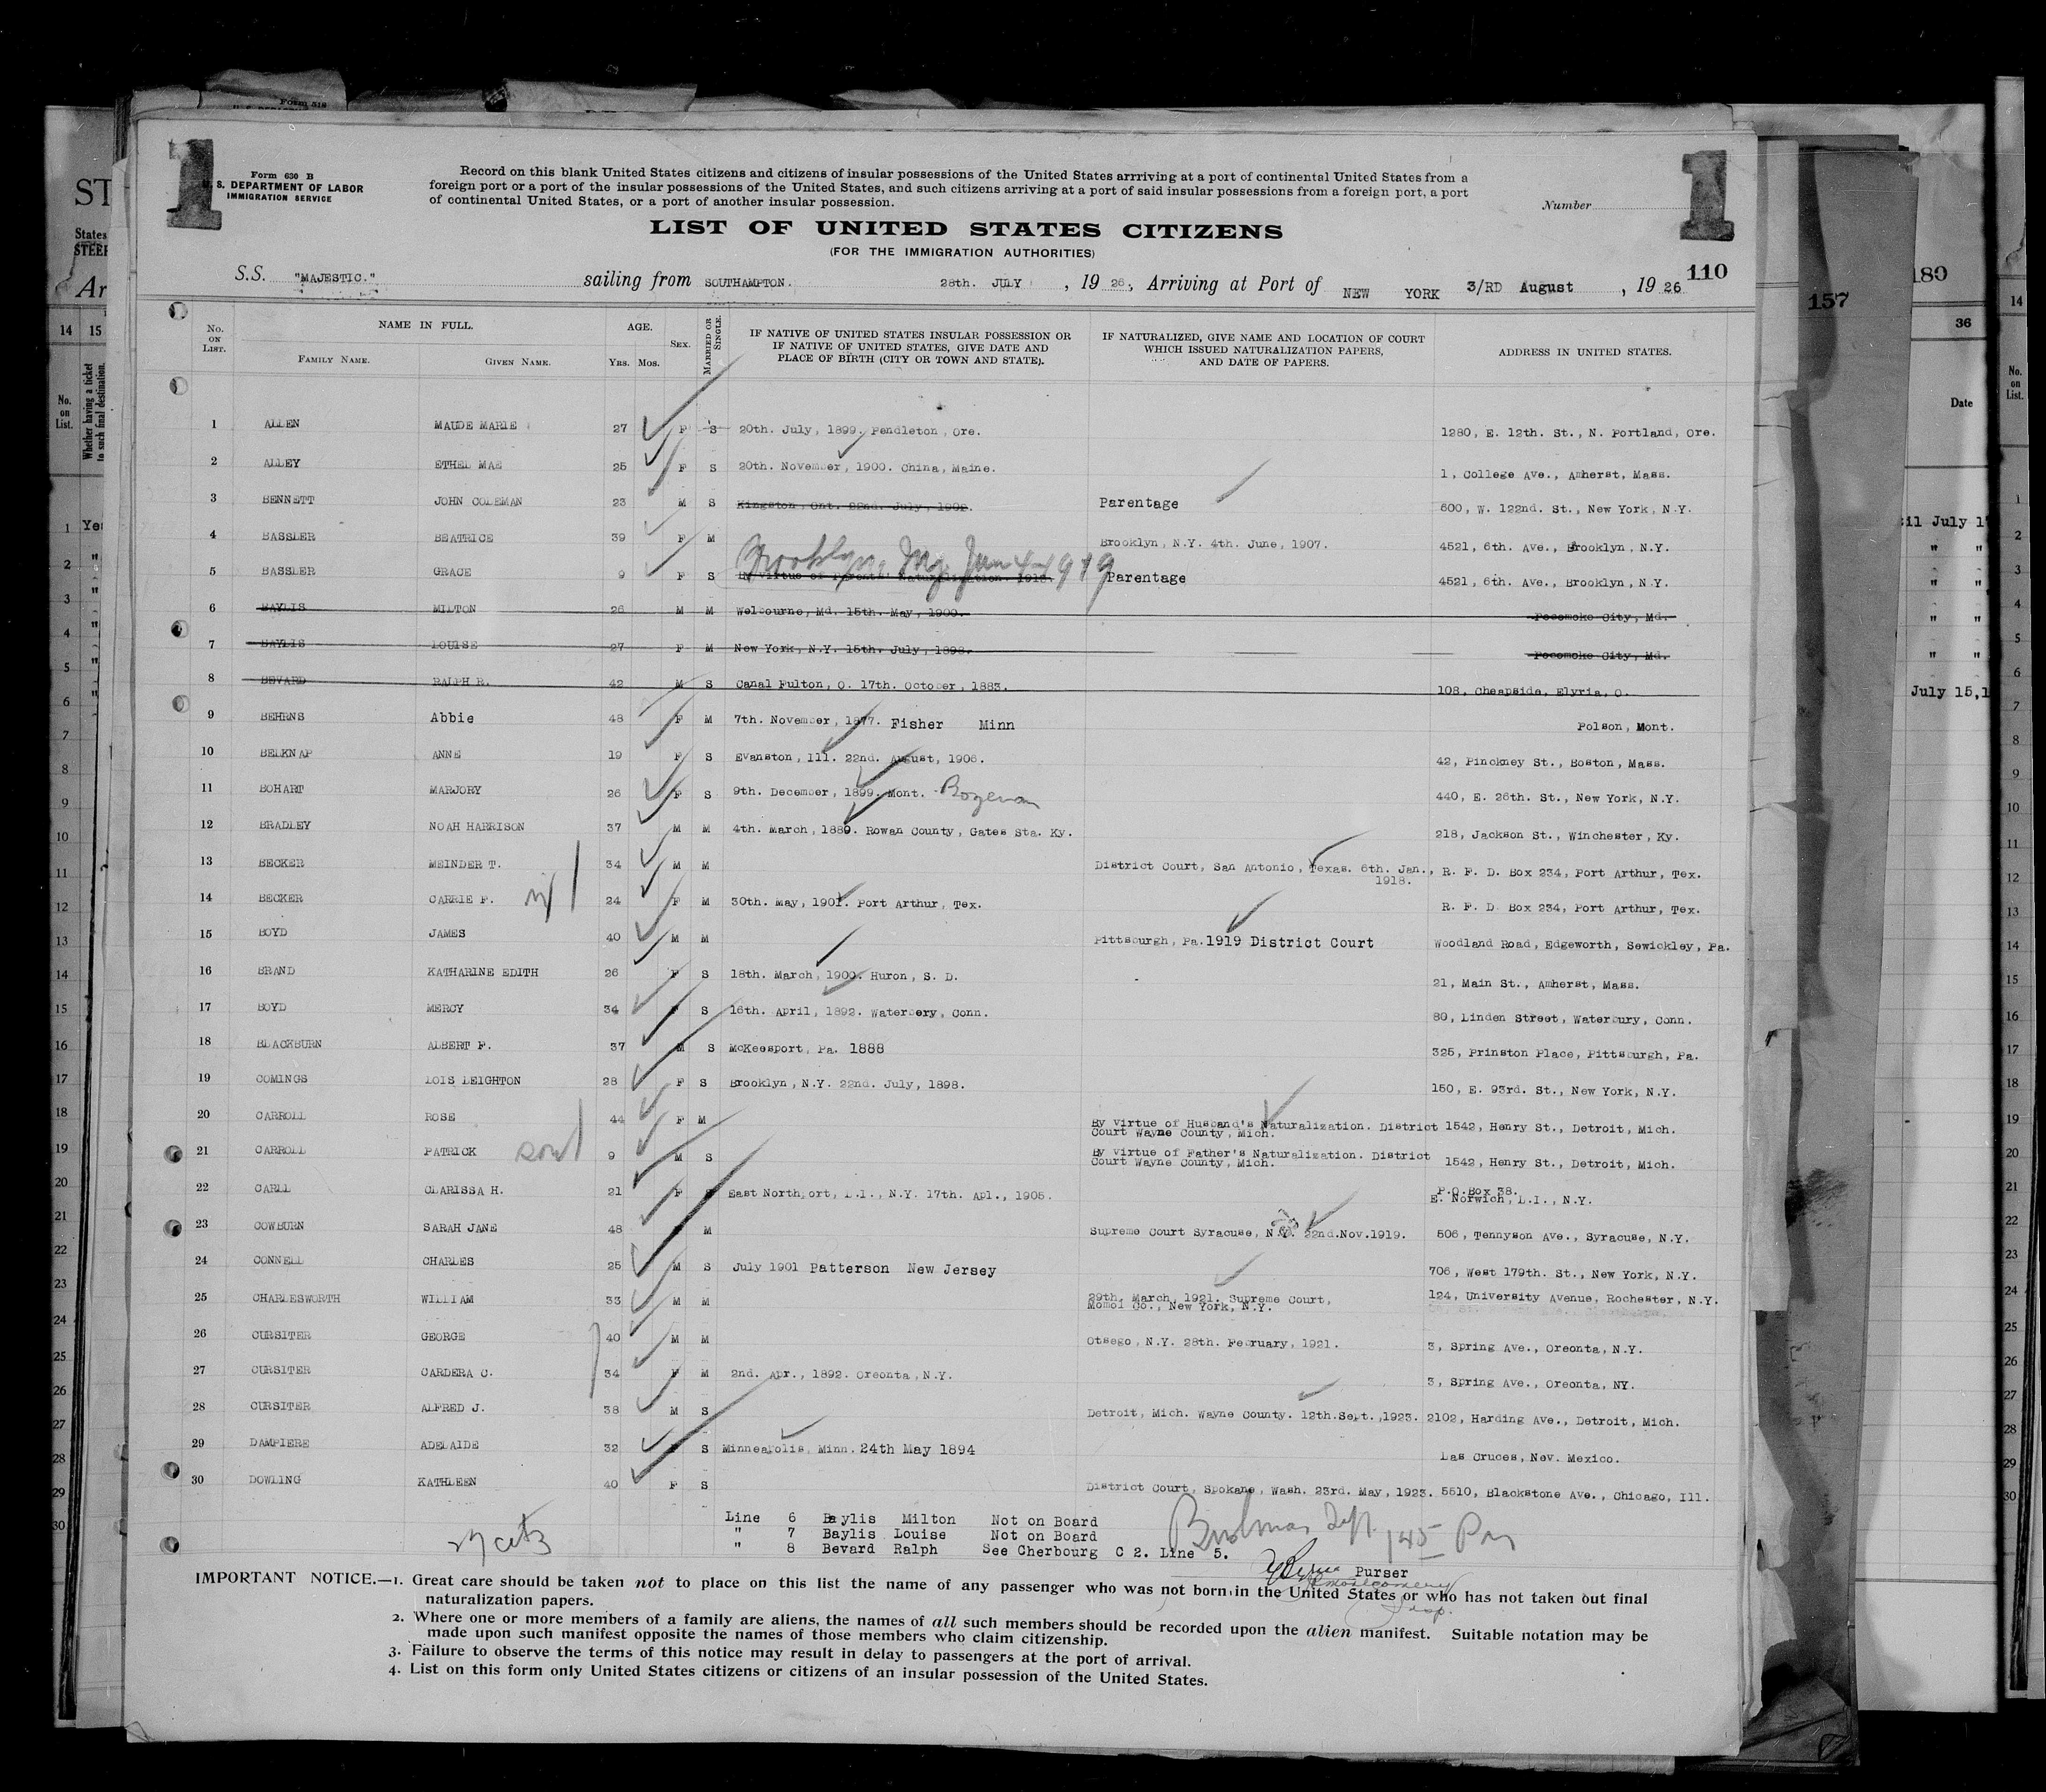 1
1
Form 630 B
U. S. DEPARTMENT OF LABOR
IMMIGRATION SERVICE
Record on this blank United States citizens and citizens of insular possessions of the United States arrriving at a port of continental United States from a
foreign port or a port of the insular possessions of the United States, and such citizens arriving at a port of said insular possessions from a foreign port, a port
of continental United States, or a port of another insular possession.
Number
LIST OF UNITED STATES CITIZENS
(FOR THE IMMIGRATION AUTHORITIES)
110
S.S. "MAJESTIC." sailing from SOUTHAMPTON. 28th. JULY, 1926, Arriving at Port of NEW YORK 3/RD August, 1926
No. ON LIST. NAME IN FULL. FAMILY NAME. GIVEN NAME. AGE. YRS. MOS. SEX. MARRIED OR SINGLE. IF NATIVE OF UNITED STATES INSULAR POSSESSION OR IF NATIVE OF UNITED STATES, GIVE DATE AND PLACE OF BIRTH (CITY OR TOWN AND STATE). IF NATURALIZED, GIVE NAME AND LOCATION OF COURT WHICH ISSUED NATURALIZATION PAPERS, AND DATE OF PAPERS. ADDRESS IN UNITED STATES.
1 ALLEN MAUDE MARIE 27 F S 20th. July, 1899. Pendleton, Ore. 1280, E. 12th. St., N. Portland, Ore.
2 ALLEY ETHEL MAE 25 F S 20th. November, 1900. China, Maine. 1, College Ave., Amherst, Mass.
3 BENNETT JOHN COLEMAN 23 M S Kingston, Ont. 22nd. July, 1902. Parentage 600, W. 122nd. St., New York, N.Y.
4 BASSLER BEATRICE 39 F M Brooklyn, N.Y. 4th. June, 1907. 4521, 6th. Ave., Brooklyn, N.Y.
Brooklyn, Ny. Jun 4-1919
5 BASSLER GRACE 9 F S By virtue of Parents' Naturalization. 1918. Parentage 4521, 6th. Ave., Brooklyn, N.Y.
6 BAYLIS MILTON 26 M M Welbourne, Md. 15th. May, 1900. Pocomoke City, Md.
7 BAYLIS LOUISE 27 F M New York, N.Y. 15th. July, 1898. Pocomoke City, Md.
8 BEVARD RALPH R. 42 M S Canal Fulton, O. 17th. October, 1883. 108, Cheapside, Elyria, O.
9 BEHRNS Abbie 48 F M 7th. November, 1877. Fisher Minn Polson, Mont.
10 BELKNAP ANNE 19 F S Evanston, Ill. 22nd. August, 1906. 42, Pinckney St., Boston, Mass.
11 BOHART MARJORY 26 F S 9th. December, 1899. Mont. Bozeman 440, E. 26th. St., New York, N.Y.
12 BRADLEY NOAH HARRISON 37 M M 4th. March, 1889. Rowan County, Gates Sta. Ky. 218, Jackson St., Winchester, Ky.
13 BECKER MEINDER T. 34 M M District Court, San Antonio, Texas. 6th. Jan., 1918. R. F. D. Box 234, Port Arthur, Tex.
14 BECKER CARRIE F. 24 F M 30th. May, 1901. Port Arthur, Tex. R. F. D Box 234, Port Arthur, Tex.
15 BOYD JAMES 40 M M Pittsburgh, Pa. 1919 District Court Woodland Road, Edgeworth, Sewickley, Pa.
16 BRAND KATHARINE EDITH 26 F S 18th. March, 1900. Huron, S. D. 21, Main St., Amherst, Mass.
17 BOYD MERCY 34 F S 16th. April, 1892. Waterbery, Conn. 80, Linden Street, Waterbury, Conn.
18 BLACKBURN ALBERT F. 37 M S McKeesport, Pa. 1888 325, Prinston Place, Pittsburgh, Pa.
19 COMINGS LOIS LEIGHTON 28 F S Brooklyn, N.Y. 22nd. July, 1898. 150, E. 93rd. St., New York, N.Y.
20 CARROLL ROSE 44 F M By Virtue of Husband's Naturalization. District Court Wayne County, Mich. 1542, Henry St., Detroit, Mich.
21 CARROLL PATRICK son 9 M S By Virtue of Father's Naturalization. District Court Wayne County, Mich. 1542, Henry St., Detroit, Mich.
22 CARLL CLARISSA H. 21 F East Northport, L.I., N.Y. 17th. Apl., 1905. P.O.Box 38. E. Norwich, L.I., N.Y.
23 COWBURN SARAH JANE 48 M Supreme Court Syracuse, N.Y. 22nd.Nov.1919. 506, Tennyson Ave., Syracuse, N.Y.
24 CONNELL CHARLES 25 M S July 1901 Patterson New Jersey 706, West 179th. St., New York, N.Y.
25 CHARLESWORTH WILLIAM 33 M M 29th. March, 1921. Supreme Court, Momol Co., New York, N.Y. 124, University Avenue, Rochester, N.Y.
26 CURSITER GEORGE 40 M M Otsego, N.Y. 28th. February, 1921. 3, Spring Ave., Oreonta, N.Y.
27 CURSITER CARDERA C. 34 F M 2nd. Apr., 1892. Oreonta, N.Y. 3, Spring Ave., Oreonta, NY.
28 CURSITER ALFRED J. 38 M S Detroit, Mich. Wayne County. 12th.Sept.,1923. 2102, Harding Ave., Detroit, Mich.
29 DAMPIERE ADELAIDE 32 F S Minneapolis, Minn. 24th May 1894 Las Cruces, Nev. Mexico.
30 DOWLING KATHLEEN 40 F S District Court, Spokane, Wash. 23rd. May, 1923. 5510, Blackstone Ave., Chicago, Ill.
Line 6 Baylis Milton Not on Board
" 7 Baylis Louise Not on Board
" 8 Bevard Ralph See Cherbourg C 2. Line 5.
145 Pm
Purser
IMPORTANT NOTICE.—1. Great care should be taken not to place on this list the name of any passenger who was not born in the United States or who has not taken out final
naturalization papers.
2. Where one or more members of a family are aliens, the names of all such members should be recorded upon the alien manifest. Suitable notation may be
made upon such manifest opposite the names of those members who claim citizenship.
3. Failure to observe the terms of this notice may result in delay to passengers at the port of arrival.
4. List on this form only United States citizens or citizens of an insular possession of the United States.
157
180
36
Date
July 15,1